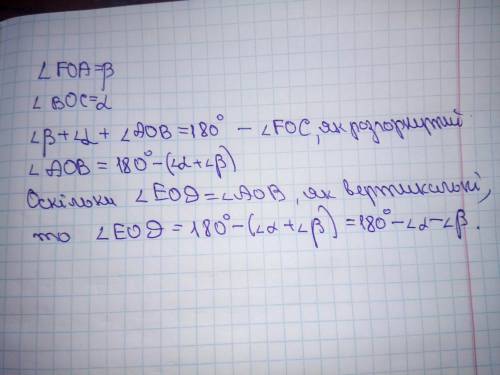 ∠FOA=β
∠BOC=α
∠β+∠α+∠AOB=180° - ∠FOC, як розгорнутий
∠AOB = 180°-(∠α+∠β)
Оскільки ∠EOD=∠AOB, як вертикальні,
то ∠EOD = 180°-(∠α+∠β)=180°-∠α-∠β.